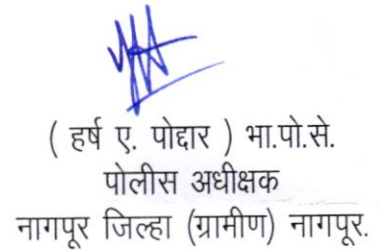 ( हर्ष ए. पोद्दार ) भा.पो.से.
पोलीस अधीक्षक
नागपूर जिल्हा (ग्रामीण) नागपूर.